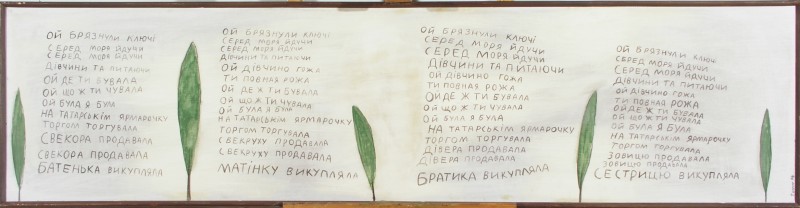 ОЙ БРЯЗНУЛИ КЛЮЧІ
СЕРЕД МОРЯ ЙДУЧИ
СЕРЕД МОРЯ ЙДУЧИ
ДІВЧИНИ ТА ПИТАЮЧИ
ОЙ ДЕ ТИ БУВАЛА
ОЙ ЩО Ж ТИ ЧУВАЛА
ОЙ БУЛА Я БУЛА
НА ТАТАРСЬКІМ ЯРМАРОЧКУ
ТОРГОМ ТОРГУВАЛА
СВЕКОРА ПРОДАВАЛА
СВЕКОРА ПРОДАВАЛА
БАТЕНЬКА ВИКУПЛЯЛА
ОЙ БРЯЗНУЛИ КЛЮЧІ
СЕРЕД МОРЯ ЙДУЧИ
СЕРЕД МОРЯ ЙДУЧИ
ДІВЧИНИ ТА ПИТАЮЧИ
ОЙ ДІВЧИНО ГОЖА
ТИ ПОВНАЯ РОЖА
ОЙ ДЕ Ж ТИ БУВАЛА
ОЙ ЩО Ж ТИ ЧУВАЛА
ОЙ БУЛА Я БУЛА
НА ТАТАРСЬКІМ ЯРМАРОЧКУ
ТОРГОМ ТОРГУВАЛА
СВЕКРУХУ ПРОДАВАЛА
СВЕКРУХУ ПРОДАВАЛА
МАТІНКУ ВИКУПЛЯЛА
ОЙ БРЯЗНУЛИ КЛЮЧІ
СЕРЕД МОРЯ ЙДУЧИ
СЕРЕД МОРЯ ЙДУЧИ
ДІВЧИНИ ТА ПИТАЮЧИ
ОЙ ДІВЧИНО ГОЖА
ТИ ПОВНАЯ РОЖА
ОЙ ДЕ Ж ТИ БУВАЛА
ОЙ ЩО Ж ТИ ЧУВАЛА
ОЙ БУЛА Я БУЛА
НА ТАТАРСЬКІМ ЯРМАРОЧКУ
ТОРГОМ ТОРГУВАЛА
ДІВЕРА ПРОДАВАЛА
ДІВЕРА ПРОДАВАЛА
БРАТИКА ВИКУПЛЯЛА
ОЙ БРЯЗНУЛИ КЛЮЧІ
СЕРЕД МОРЯ ЙДУЧИ
СЕРЕД МОРЯ ЙДУЧИ
ДІВЧИНИ ТА ПИТАЮЧИ
ОЙ ДІВЧИНО ГОЖА
ТИ ПОВНАЯ РОЖА
ОЙ ДЕ Ж ТИ БУВАЛА
ОЙ ЩО Ж ТИ ЧУВАЛА
ОЙ БУЛА Я БУЛА
НА ТАТАРСЬКІМ ЯРМАРОЧКУ
ТОРГОМ ТОРГУВАЛА
ЗОВИЦЮ ПРОДАВАЛА
ЗОВИЦЮ ПРОДАВАЛА
СЕСТРИЦЮ ВИКУПЛЯЛА